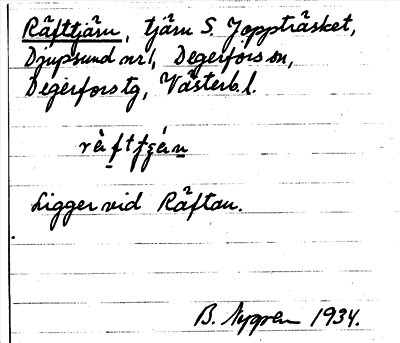 Räfttjärn, tjärn S. Joppträsket,
Djupsund nr 1, Degerfors sn,
Degerfors tg, Västerb. l.
rä̀ftʃæ̀rn
Ligger vid Räftan.
B. Nygren 1934.